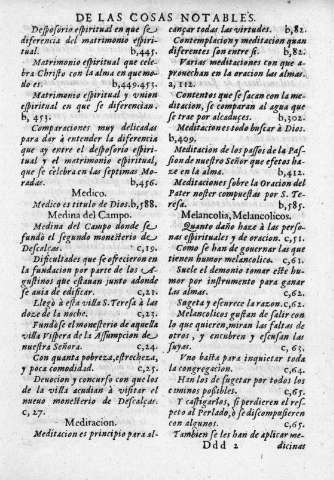 DE LAS COSAS NOTABLES.
Desposorio espiritual en que se
diferencia del matrimonio espiri-
tual. b,445.
Matrimonio espiritual que cele-
bra Christo con la alma en que mo-
do es. b,449.453.
Matrimonio espiritual y vnion
espiritual en que se diferencian.
b, 453.
Comparaciones muy delicadas
para dar à entender la diferencia
que ay entre el desposorio espiri-
tual y el matrimonio espiritual,
que se celebra en las septimas Mo-
radas. b,456.
Medico.
Medico es titulo de Dios. b,588.
Medina del Campo.
Medina del Campo donde se
fundò el segundo monesterio de
Descalças. c,19.
Dificultades que se ofrecieron en
la fundacion por parte de los A-
gustinos que estauan junto adonde
se auia de edificar. c,21.
Llegò à esta villa S. Teresa à las
doze de la noche. c,23.
Fundòse el monesterio de aquella
villa Vispera de la Assumpcion de
nuestra Señora. c,24.
Con quanta pobreza, estrecheza,
y poca comodidad. c,25.
Deuocion y concurso con que los
de la villa acudian à visitar el
nueuo monesterio de Descalças.
c, 27.
Meditacion.
Meditacion es principio para al-
cançar todas las virtudes. b,82.
Contemplacion y meditacion quan
diferentes son entre si. b,82.
Varias meditaciones con que a-
prouechan en la oracion las almas.
a, 112.
Contentos que se sacan con la me-
ditacion, se comparan al agua que
se trae por alcaduces. b,302.
Meditacion es todo buscar à Dios.
b,409.
Meditacion de los passos de la Pas-
sion de nuestro Señor que efetos ha-
ze en la alma. b,412.
Meditaciones sobre la Oracion del
Pater noster compuestas por S. Te-
resa. b,585.
Melancolia, Melancolicos.
Quanto daño haze à las perso-
nas espirituales y de oracion. c,51.
Como se han de gouernar las que
tienen humor melancolico. c,61.
Suele el demonio tomar este hu-
mor por instrumento para ganar
las almas. c,62.
Sugeta y escurece la razon. c,62.
Melancolicos gustan de salir con
lo que quieren, miran las faltas de
otros, y encubren y escusan las
suyas. c,63.
Vno basta para inquietar toda
la congregacion. c,64.
Han los de sugetar por todos los
caminos possibles. c,65.
Y castigarlos, si perdieren el res-
peto al Perlado, ò se discompusieren
con algunos. c,65.
Tambien se les han de aplicar me-
Ddd 2 dicinas